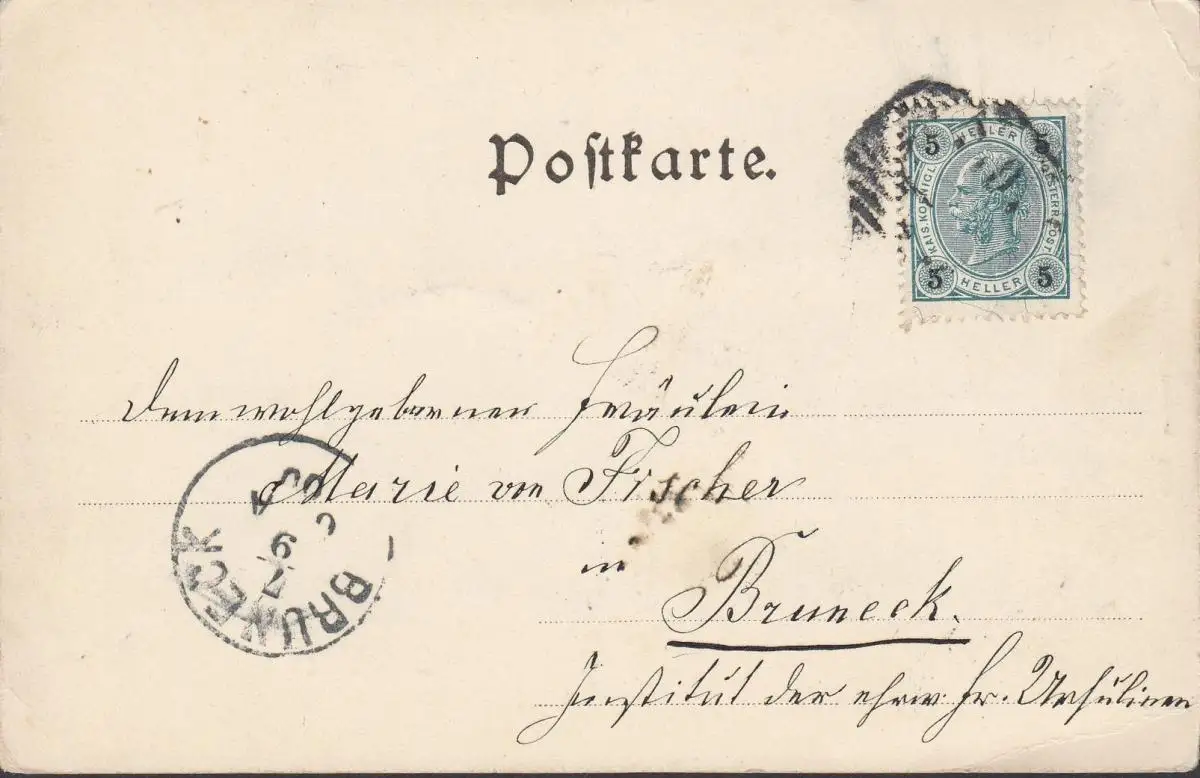 Postkarte.
5 HELLER 5
KAIS. KOENIGL. OESTERR. POST.
5 HELLER 5
Dem wohlgebornen Fräulein
Marie von Fischer
in
Bruneck.
Institut der ehrw. Fr. Ursulinen
BRUNECK